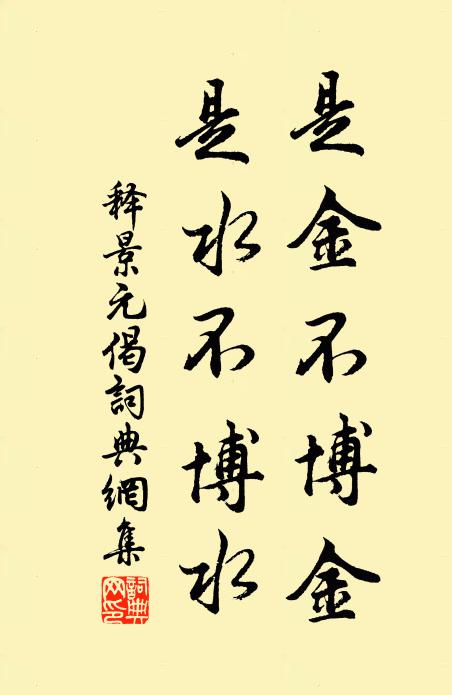 是金不博金
是水不博水
释景元偈詞典網集
詞典网印